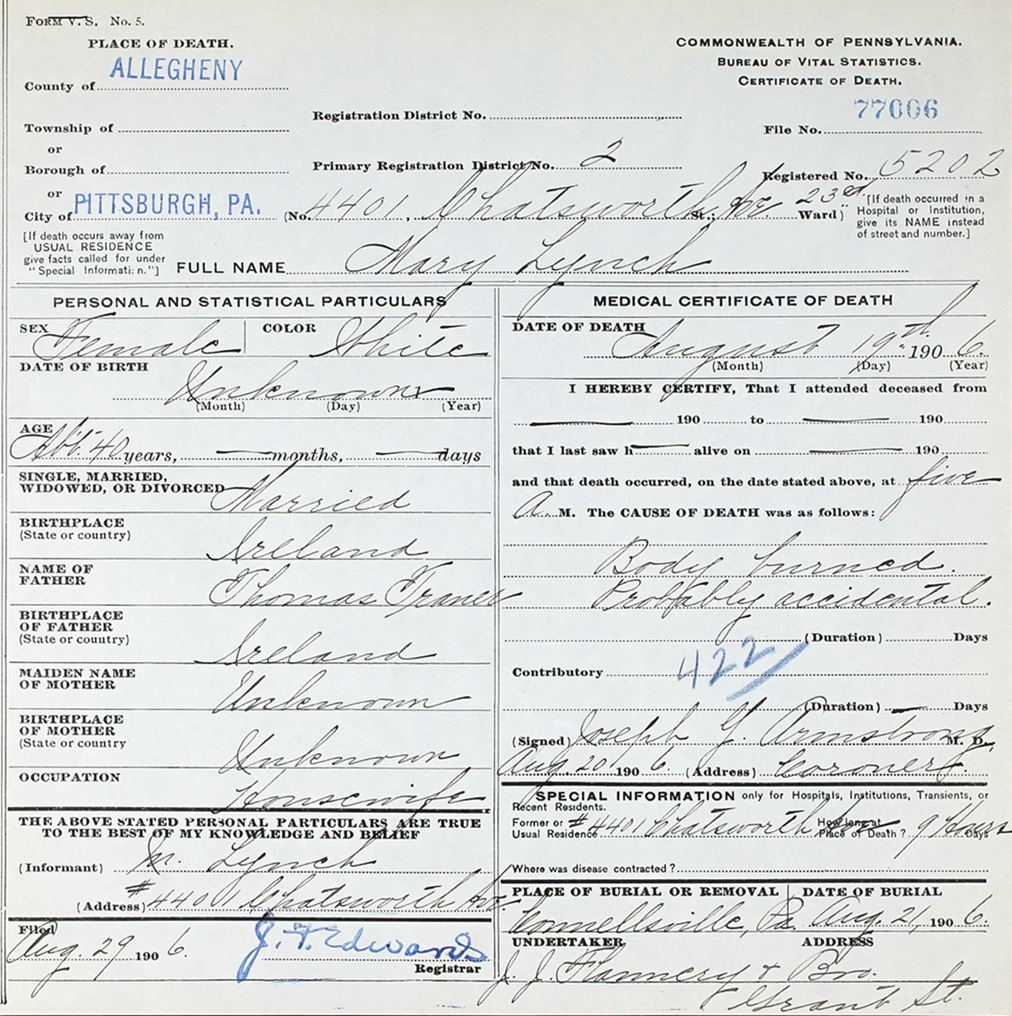 FORM V. S. No. 5.
PLACE OF DEATH.
County of ALLEGHENY
Township of
or
Borough of
or
City of PITTSBURGH, PA.
[If death occurs away from
USUAL RESIDENCE
give facts called for under
"Special Informati n."]
COMMONWEALTH OF PENNSYLVANIA.
BUREAU OF VITAL STATISTICS.
CERTIFICATE OF DEATH.
Registration District No.
77006
File No.
Primary Registration District No. 2
Registered No. 5202
(No. 4401, Chatsworth St.; Ave 23rd Ward)
[If death occurred in a
Hospital or Institution,
give its NAME instead
of street and number.]
FULL NAME Mary Lynch
PERSONAL AND STATISTICAL PARTICULARS
SEX Female COLOR White
DATE OF BIRTH
Unknown
(Month) (Day) (Year)
AGE
Abt. 40 years, — months, — days
SINGLE, MARRIED,
WIDOWED, OR DIVORCED Married
BIRTHPLACE
(State or country) Ireland
NAME OF
FATHER Thomas
BIRTHPLACE
OF FATHER
(State or country) Ireland
MAIDEN NAME
OF MOTHER Unknown
BIRTHPLACE
OF MOTHER
(State or country Unknown
OCCUPATION
Housewife
THE ABOVE STATED PERSONAL PARTICULARS ARE TRUE
TO THE BEST OF MY KNOWLEDGE AND BELIEF
(Informant) M. Lynch
(Address) #4401 Chatsworth Ave
Filed
Aug. 29 190 6. J. F. Edwards
Registrar
MEDICAL CERTIFICATE OF DEATH
DATE OF DEATH
August 19th. 190 6.
(Month) (Day) (Year)
I HEREBY CERTIFY, That I attended deceased from
— 190 to — 190
that I last saw h— alive on — 190
and that death occurred, on the date stated above, at five
A. M. The CAUSE OF DEATH was as follows:
Body burned.
Probably accidental.
(Duration) Days
Contributory 422
(Duration) — Days
(Signed) Joseph G. Armstrong M. D.
Aug. 20 190 6. (Address) Coroner
SPECIAL INFORMATION only for Hospitals, Institutions, Transients, or
Recent Residents.
Former or
Usual Residence #4401 Chatsworth Ave How long at
Place of Death? 9 Years Days
Where was disease contracted?
PLACE OF BURIAL OR REMOVAL DATE OF BURIAL
Connellsville, Pa. Aug. 21, 190 6.
UNDERTAKER, ADDRESS
J. J. Flannery & Bro.
Grant St.